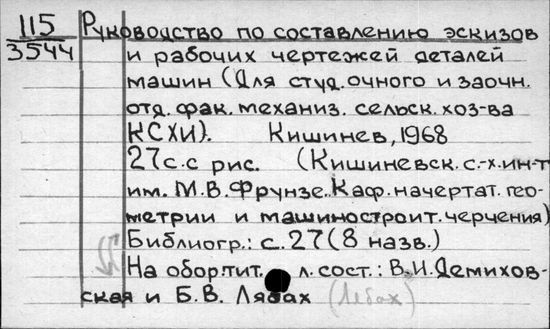 115
3544
Руководство по составлению эскизов
и рабочих чертежей деталей
машин (Для студ. очного и заочн.
отд. фак. механиз. сельск. хоз-ва
КСХИ). Кишинев, 1968
27с. с рис. (Кишиневск. с.-х. ин-т
им. М.В. Фрунзе. Каф. начертат. гео-
метрии и машиностроит. черчения)
Библиогр.: с. 27 (8 назв.)
На обор. тит. л. сост.: В.И. Демихов-
ская и Б.В. Лябах (Лебах)